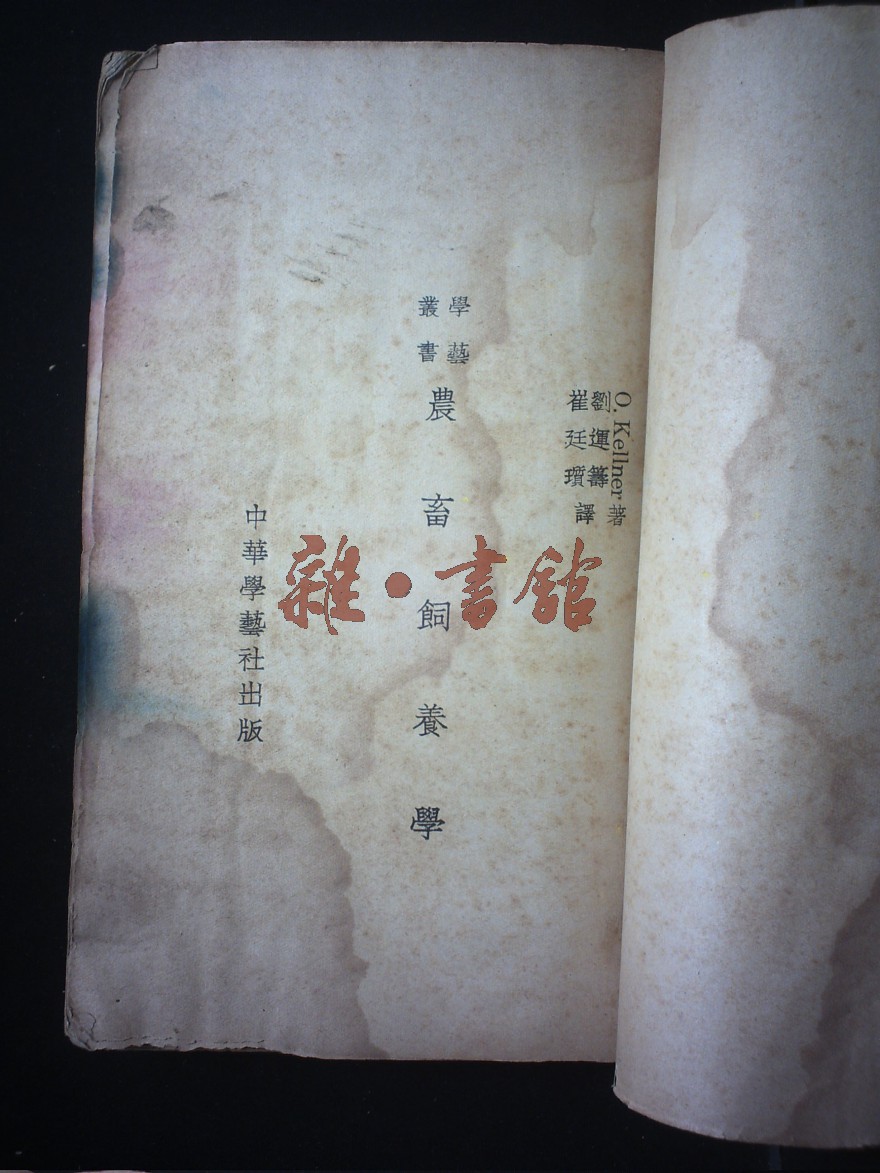 O. Kellner 著
劉運籌
崔廷瓚 譯
學藝
叢書
農畜飼養學
中華學藝社出版
雜·書館